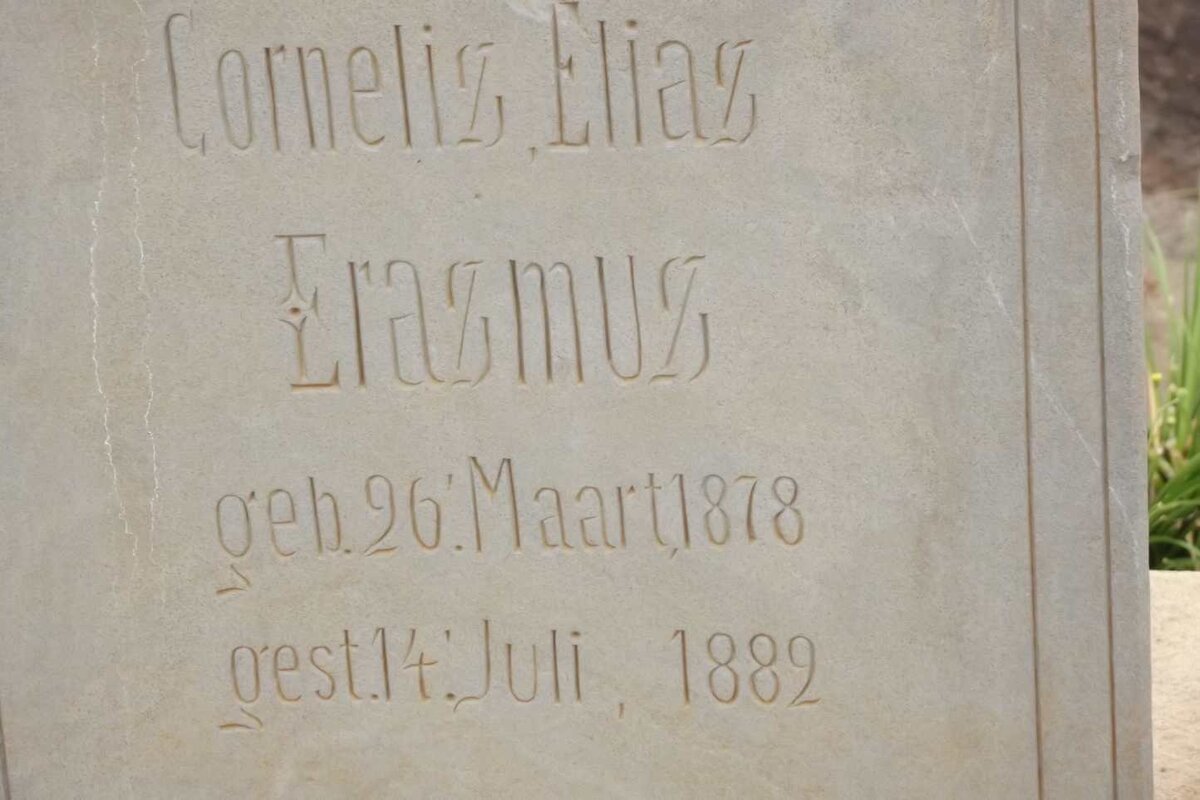 Cornelis, Elias
Erasmus
geb. 26'. Maart, 1878
gest. 14'. Juli, 1882